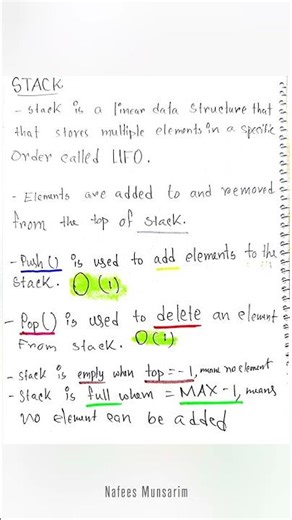 STACK
- Stack is a linear data structure that
that stores multiple elements in a specific
Order called LIFO.
- Elements are added to and removed
from the top of stack.
- Push() is used to add elements to the
stack. O(1)
- Pop() is used to delete an element
From stack. O(1)
- stack is empty when top=-1, means no element
- Stack is full when = MAX-1, means
no element can be added
Nafees Munsarim